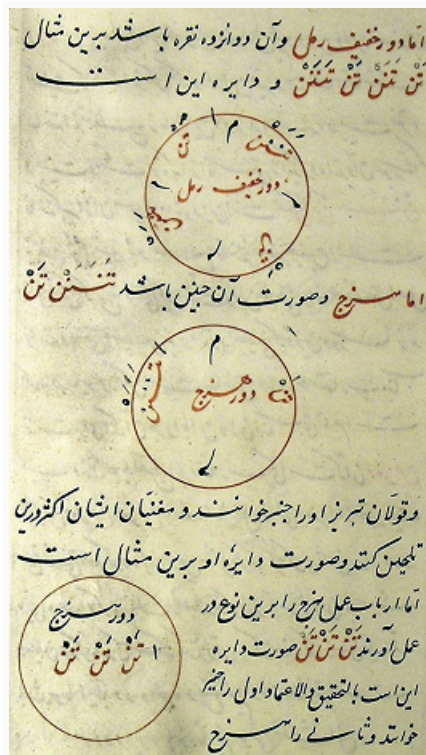 امّا دور خفیف رمل وآن دوانزده نقره باشد برین مثال
تَنْ تَنَنْ تَنْ تَنَنَنْ و دایره این است
م
تننن
تن
دور خفیف رمل
تنن
تن
اما هزج وصورت آن چنین باشد تَنَنَنْ تَنْ
م
دور هزج
تننن
تن
وقوّلان تبریز اورا چنبر خوانند و مغنیّان ایشان اکثر درین
تلحین کنند و صورت دایرهٔ او برین مثال است
امّا ارباب عمل هزج را برین نوع در
عمل آورند تَنْ تَنْ تَنْ صورت دایره
این است بالتحقیق والاعتماد اول را چنبر
خوانند و ثانی را هزج
دور هزج
تَنْ تَنْ تَنْ